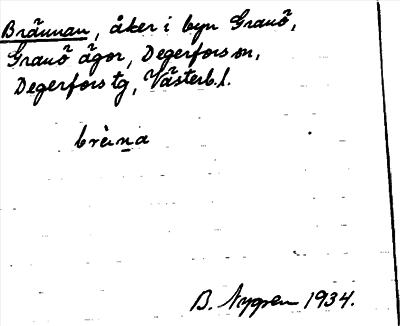 Brännan, åker i byn Granö,
Granö ägor, Degerfors sn,
Degerfors tg, Västerb. l.
brèna
B. Nygren 1934.